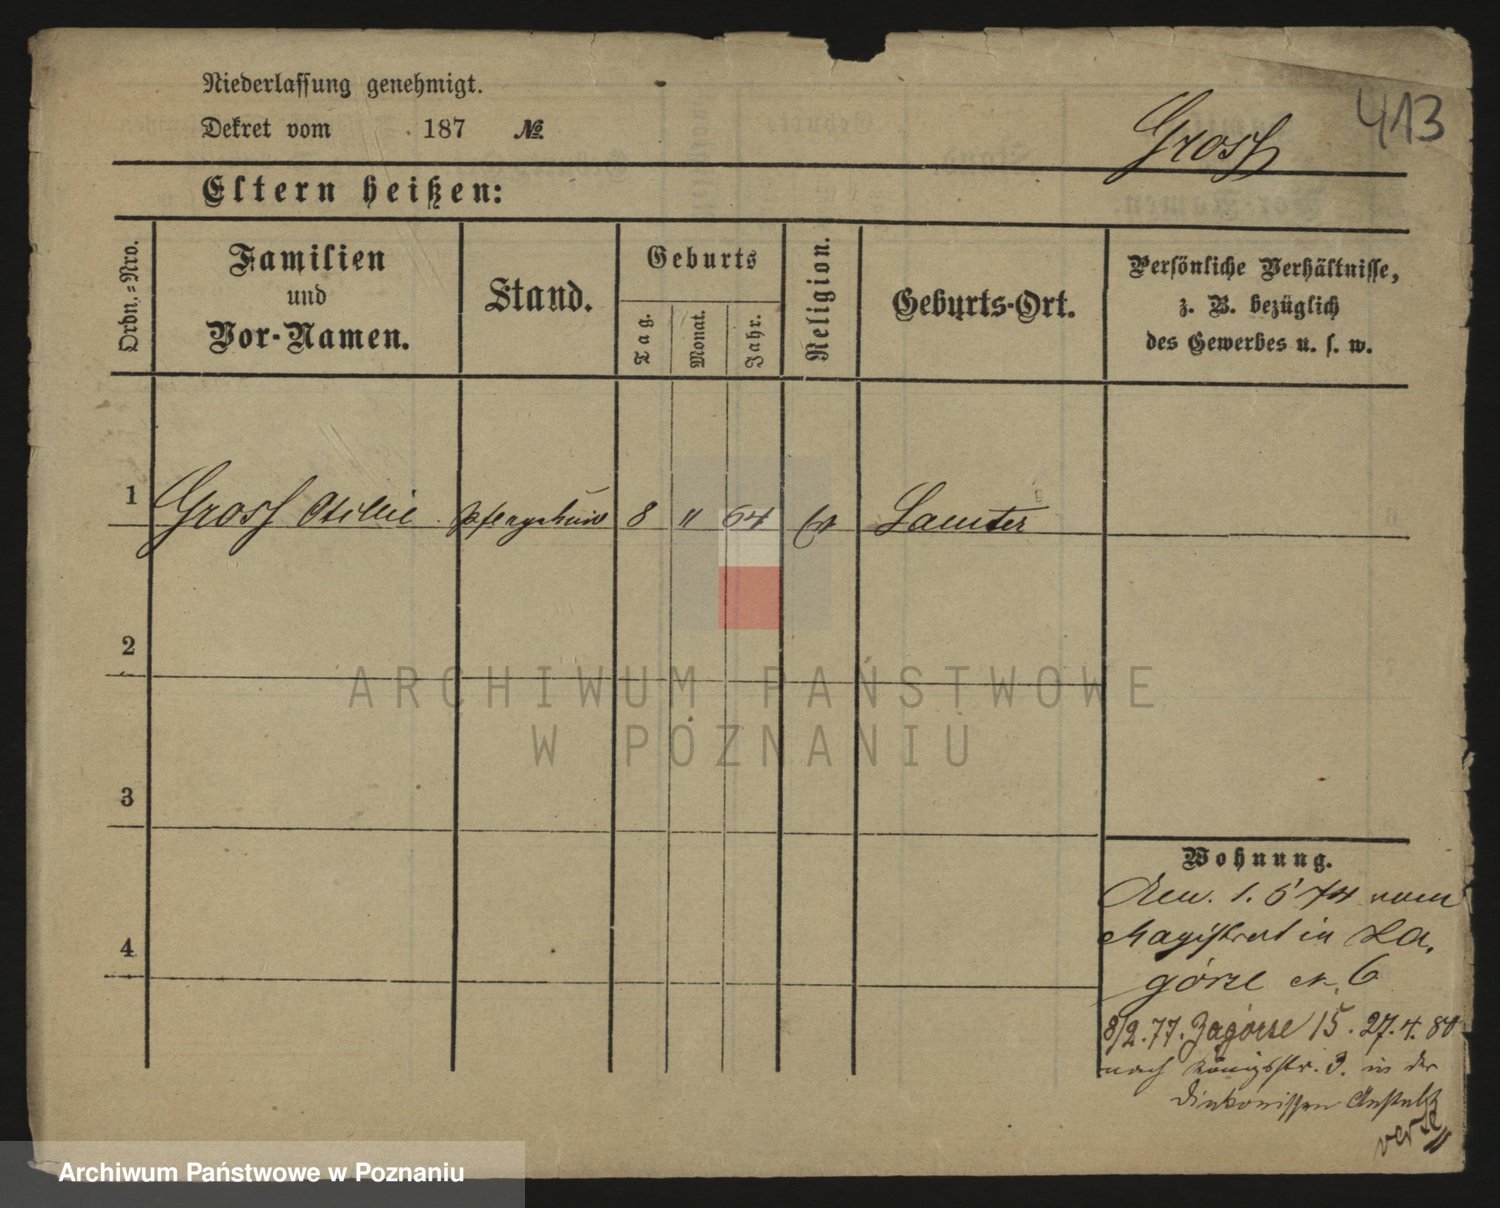 Niederlassung genehmigt.
Dekret vom 187 №
Grosz
413
Eltern heißen:
Ordn.=Nro.
Familien
und
Vor-Namen.
Stand.
Geburts
Tag.
Monat.
Jahr.
Religion.
Geburts-Ort.
Persönliche Verhältnisse,
z. B. bezüglich
des Gewerbes u. s. w.
1 Grosz Otilie 8 " 64 Samter
2
3
4
ARCHIWUM PAŃSTWOWE
W POZNANIU
Wohnung.
1. 5 74 vom
Magistrat in Za,
górze 6
8/2.77. Zagórze 15. 27.4.80
nach Königsstr. 3. in der
Diakonissen Anstalt
verte
Archiwum Państwowe w Poznaniu